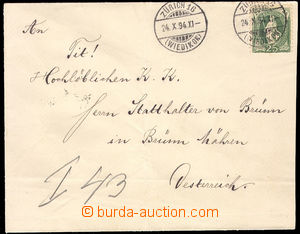 ZÜRICH 16
24.X.94.XI-
(WIEDIKON)
ZÜRICH 16
24.X.94.XI-
(WIEDIKON)
25
An
Tit!
Hochlöblichen K. K.
Herrn Statthalter von Brünn
in Brünn Mähren
Oesterreich.
I 43
© burda-auction.com